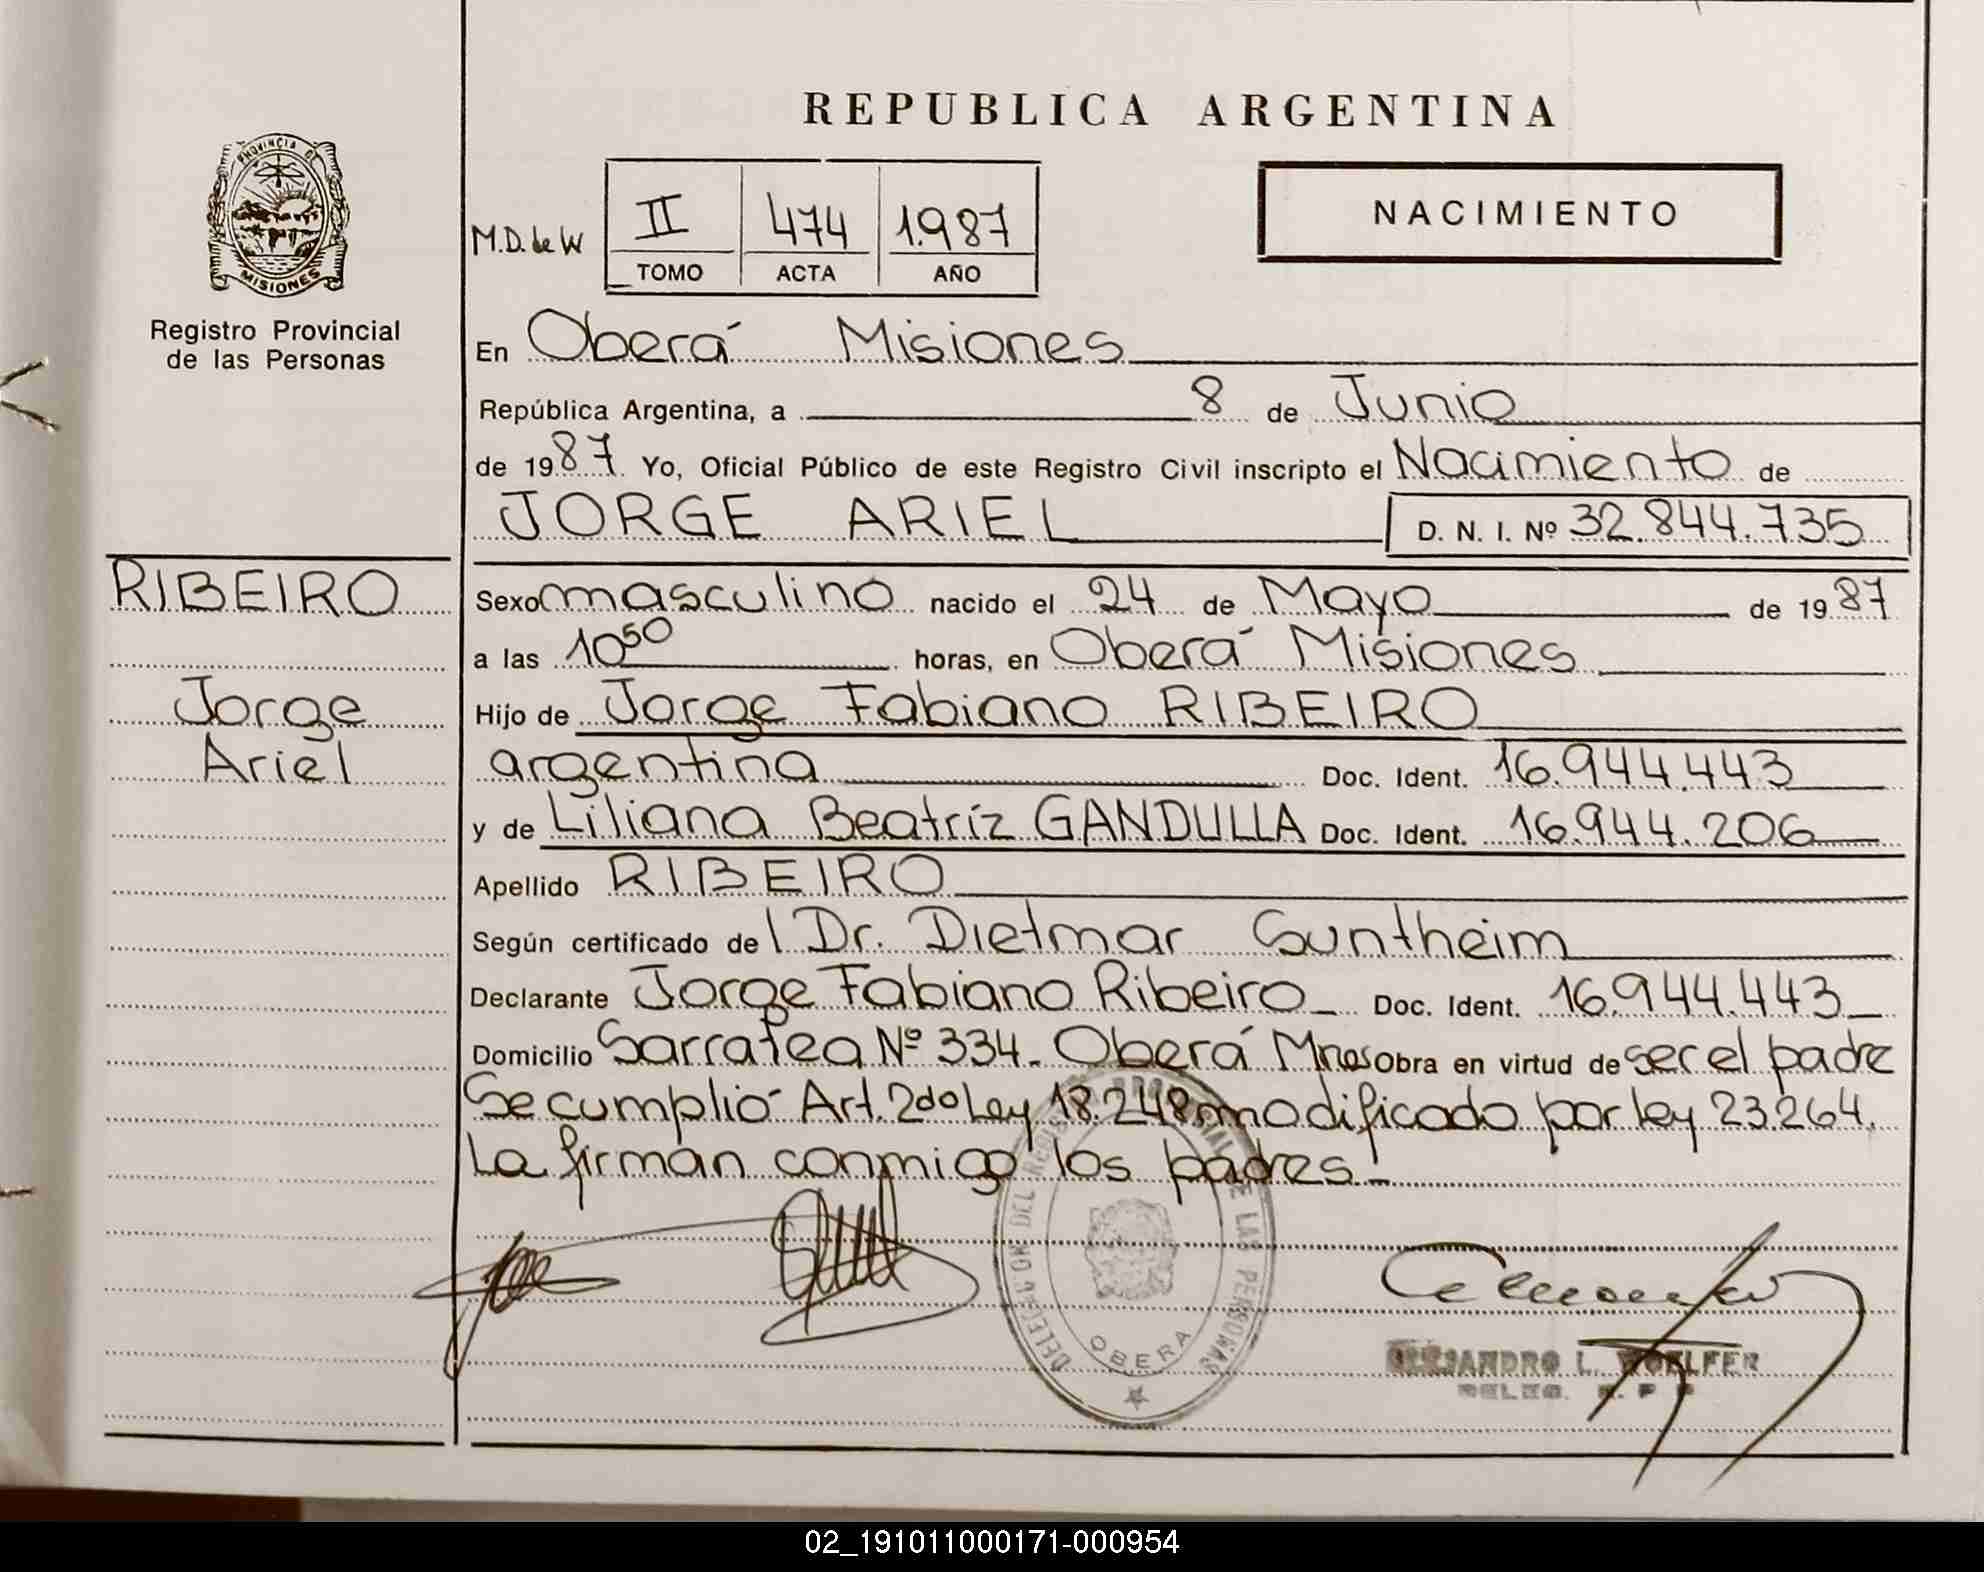 REPUBLICA ARGENTINA
PROVINCIA DE
MISIONES
Registro Provincial
de las Personas
M.D. de W
II 474 1.987
TOMO ACTA AÑO
NACIMIENTO
En Oberá Misiones
República Argentina, a 8 de Junio
de 1987. Yo, Oficial Público de este Registro Civil inscripto el Nacimiento de
JORGE ARIEL D. N. I. Nº 32.844.735
RIBEIRO
Jorge
Ariel
Sexo masculino nacido el 24 de Mayo de 1987
a las 10⁵⁰ horas, en Oberá Misiones
Hijo de Jorge Fabiano RIBEIRO
argentina Doc. Ident. 16.944.443
y de Liliana Beatríz GANDULLA Doc. Ident. 16.944.206
Apellido RIBEIRO
Según certificado del Dr. Dietmar Suntheim
Declarante Jorge Fabiano Ribeiro Doc. Ident. 16.944.443
Domicilio Sarratea Nº 334. Oberá Mnes Obra en virtud de ser el padre
Se cumplió Art. 2do Ley 18.248 modificado por ley 23.264.
La firman conmigo los padres.-
DELEGACION DEL REGISTRO PROVINCIAL DE LAS PERSONAS
OBERA
L. WOELFER
02_191011000171-000954